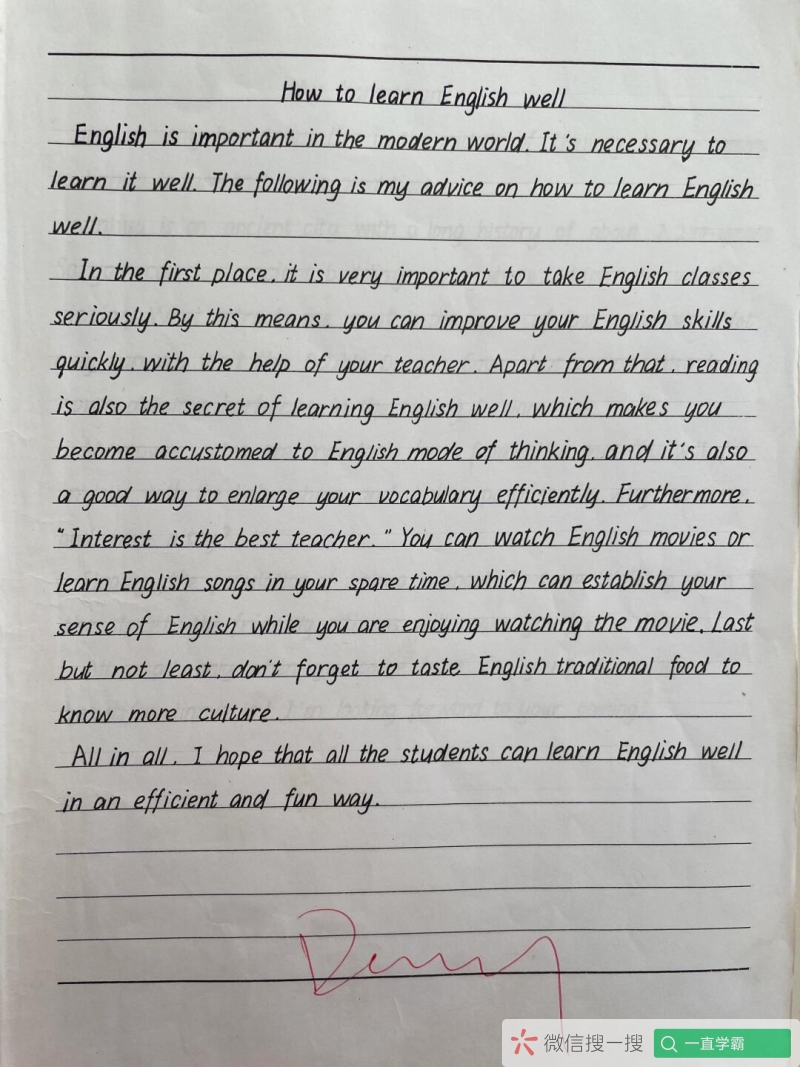 How to learn English well
English is important in the modern world. It's necessary to
learn it well. The following is my advice on how to learn English
well.
In the first place, it is very important to take English classes
seriously. By this means, you can improve your English skills
quickly, with the help of your teacher. Apart from that, reading
is also the secret of learning English well, which makes you
become accustomed to English mode of thinking, and it's also
a good way to enlarge your vocabulary efficiently. Furthermore,
"Interest is the best teacher." You can watch English movies or
learn English songs in your spare time, which can establish your
sense of English while you are enjoying watching the movie. Last
but not least, don't forget to taste English traditional food to
know more culture.
All in all, I hope that all the students can learn English well
in an efficient and fun way.
微信搜一搜 一直学霸